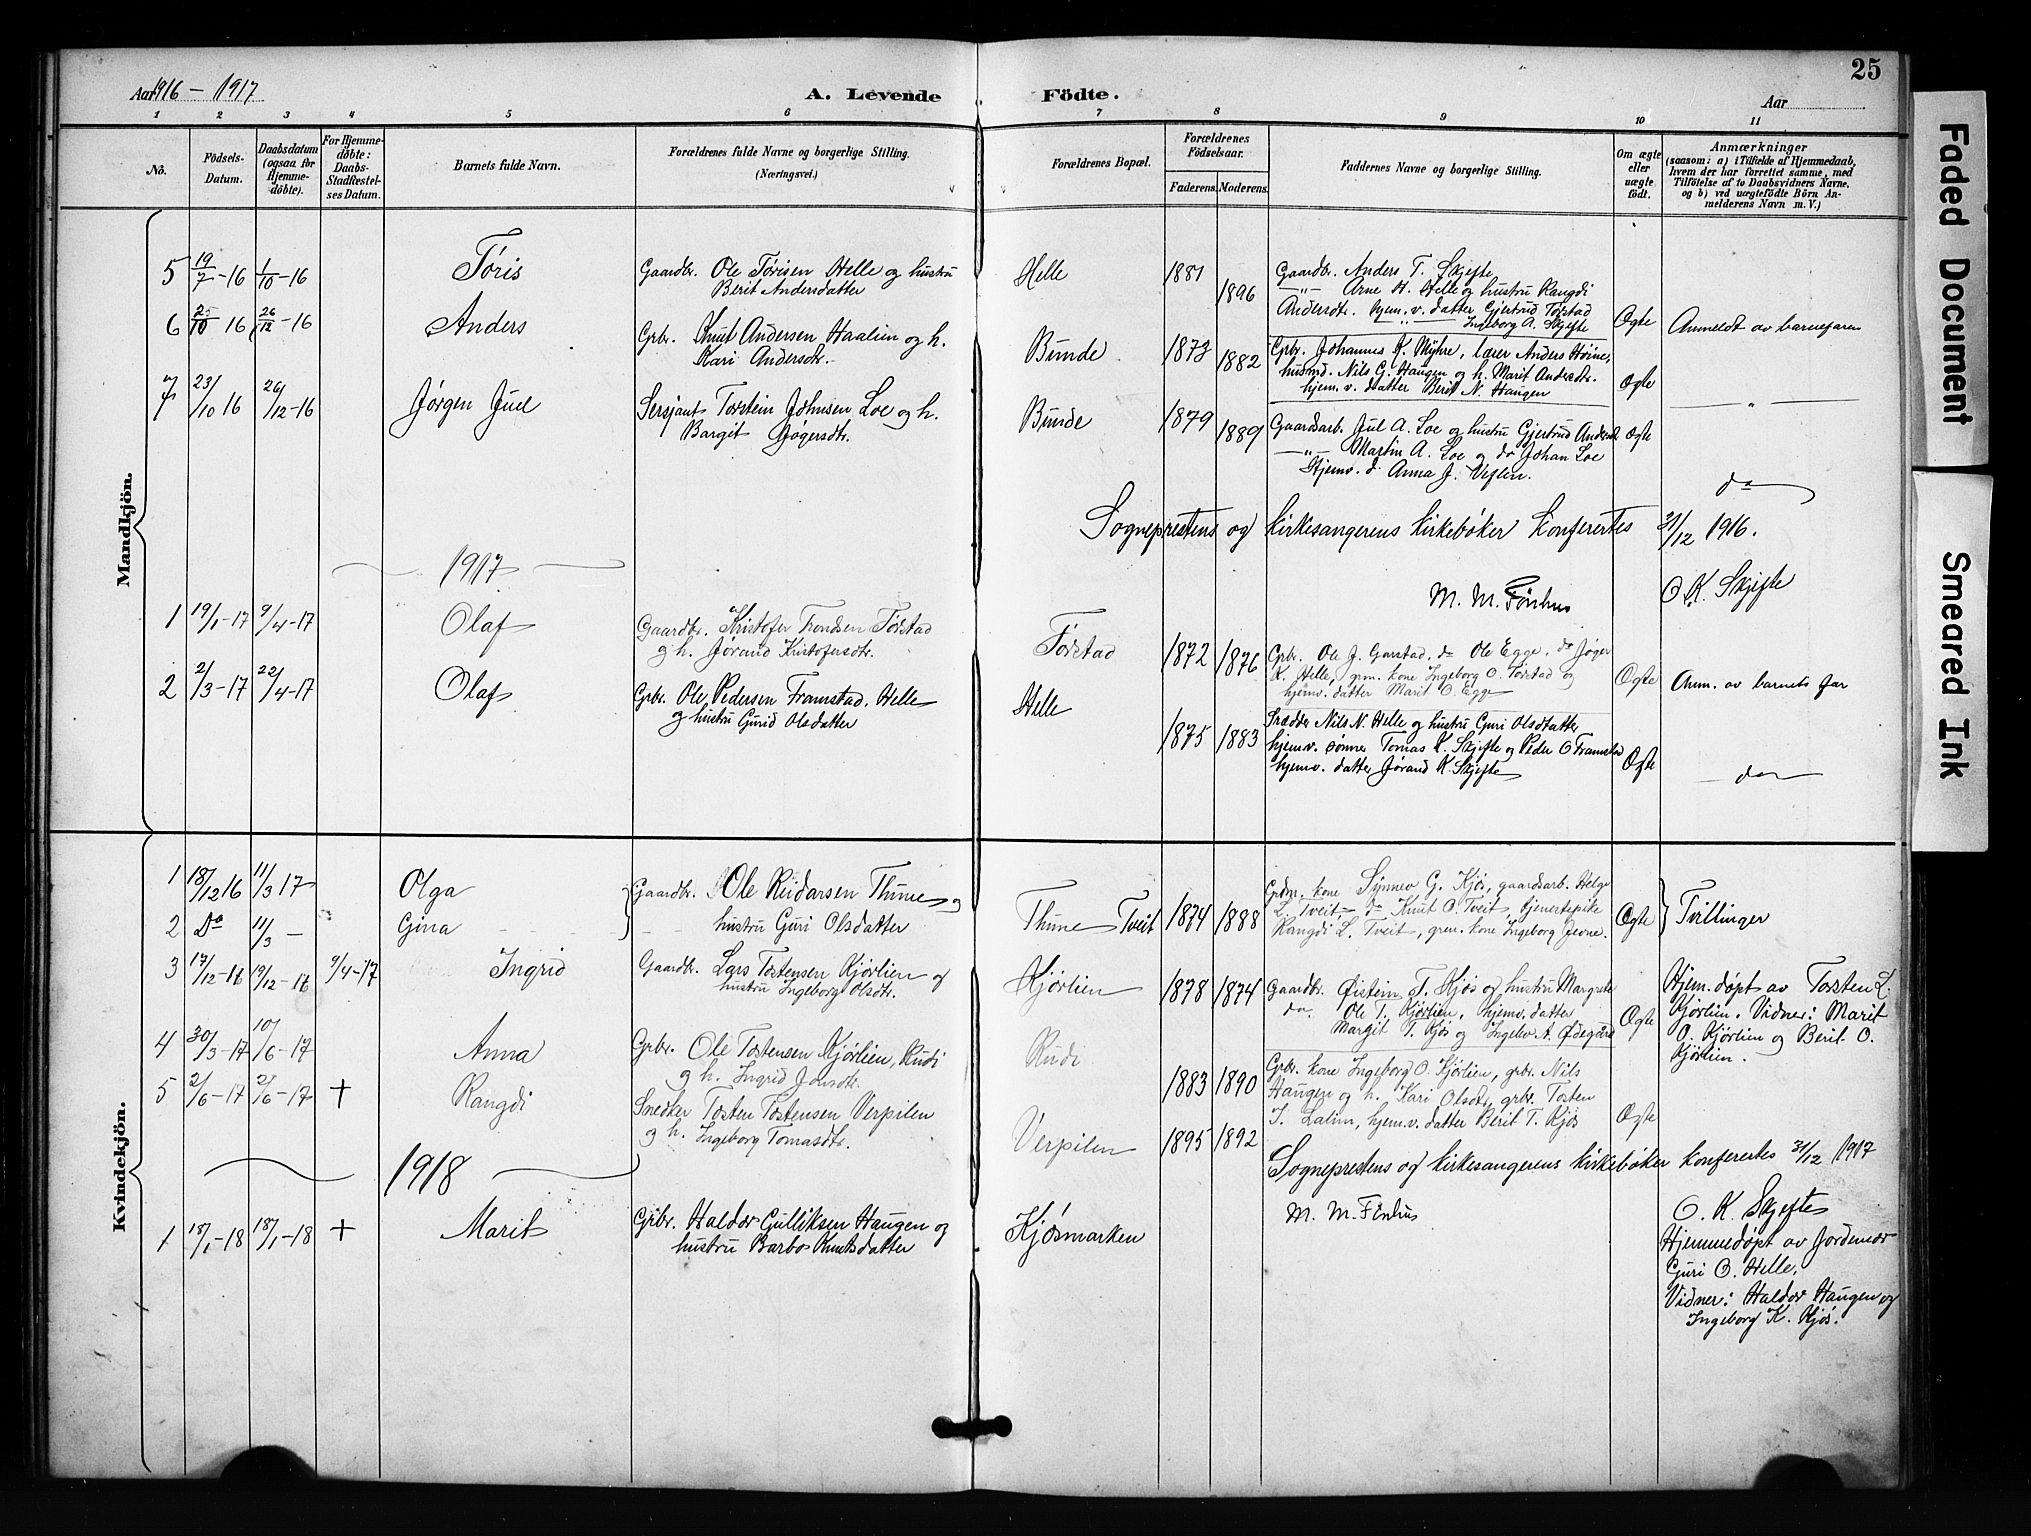 25
Aar 1916 – 1917
A. Levende Födte.
Aar
1 2 3 4 5 6 7 8 9 10 11
No.
Födsels-Datum.
Daabsdatum (ogsaa for Hjemme-döbte).
For Hjemme-döbte: Daabs-Stadfæstel-ses Datum.
Barnets fulde Navn.
Forældrenes fulde Navne og borgerlige Stilling.
(Næringsvei.)
Forældrenes Bopæl.
Forældrenes Födselsaar.
Faderens. Moderens.
Faddernes Navne og borgerlige Stilling.
Om ægte eller uægte födt.
Anmærkninger
(saasom: a) i Tilfælde af Hjemmedaab, hvem der har forrettet samme, med Tilföielse af to Daabsvidners Navne, og b) ved uægtefödte Börn An-melderens Navn m. V.)
Mandkjön.
5 19/7-16 1/10-16 Tóris Gaardbr. Ole Tórisen Helle og hustru Berit Andersdatter Helle 1881 1896
Gaardbr. Anders T. Skjefte
—"— Arne H. Helle og hustru Rangdi
Andersdtr. hjem. v. datter Gjertrud Torstad
—"— Ingeborg A. Skjefte
Ogte Anmeldt av barnefaren
6 25/10 16 26/12-16 Anders Grbr. Knut Andersen Haalien og h. Kari Andersdtr. Bunde 1873 1882
Grbr. Johannes K. Myhre, lærer Anders Høine,
husmd. Nils G. Haugen og h. Marit Andersdtr.
hjem. v. datter Berit N. Haugen
Ogte — " —
7 23/10 16 26/12-16 Jørgen Juel Sersjant Torstein Johnsen Loe og h. Bargit Jøgersdtr. Bunde 1879 1889
Gaardsarb. Jul A. Loe og hustru Gjertrud Andersd.
—"— Martin A. Loe og do Johan Loe
Hjemv. d. Anna J. Veflen.
Ogte do
Sogneprestens og kirkesangerens kirkebøker konferertes 31/12 1916.
M. M. Fónhus O. K. Skjefte
1917
1 19/1-17 9/4-17 Olaf Gaardbr. Kristofer Trondsen Torstad og h. Jørand Kristofersdtr. Torstad 1872 1876
Grbr. Ole J. Garstad, do Ole Egge, do Jøger
K. Helle, grm. kone Ingeborg O. Torstad og
hjemv. datter Marit O. Egge
Ogte Anm. av barnets far
2 2/3-17 22/4-17 Olaf Grbr. Ole Pedersen Framstad, Helle og hustru Gunid Olsdatter Helle 1875 1883
Skrædder Nils N. Helle og hustru Guri Olsdatter
hjemv. sønner Tomas K. Skjefte og Peder O Framstad
hjemv. datter Jørand K. Skjefte
Ogte do
Kvindekjön.
1 18/12 16 11/3 17 Olga
2 Do 11/3 — Gina
Gaardbr. Ole Reidarsen Thune og hustru Guri Olsdatter Thune Tveit 1874 1888
Grdm. kone Synnev G. Kjøs, gaardsarb. Helge
L. Tveit, do Knut O. Tveit, tjenestepike
Rangdi L. Tveit, grm. kone Ingeborg Jevne.
Ogte Tvillinger
3 17/12-16 19/12-16 9/4-17 Ingrid Gaardbr. Lars Tostensen Kjørlien og hustru Ingeborg Olsdtr. Kjørlien 1878 1874
Gaardbr. Øistein T. Kjøs og hustru Margrete
do. Ole T. Kjørlien, hjemv. datter
Margit T. Kjøs og Ingebor A. Ødegård
Ogte
Hjem. døpt av Torsten L.
Kjørlien. Vidner: Marit
O. Kjørlien og Berit O.
Kjørlien.
4 30/3-17 10/6-17 Anna Grbr. Ole Tostensen Kjørlien, Rudi og h. Ingrid Jonsdtr. Rudi 1883 1890
Grbr. kone Ingeborg O. Kjørlien, grbr. Nils
Haugen og h. Kari Olsdtr, grbr. Tosten
T. Lalim, hjem. v. datter Berit T. Kjøs
Ogte
5 2/6-17 2/6-17 + Rangdi Snedker Tosten Tostensen Verpilen og h. Ingeborg Tomasdtr. Verpilen 1895 1892
Sogneprestens og kirkesangerens kirkebøker konferertes 31/12 1917
M. M. Fónhus O. K. Skjefte
1918
1 18/1-18 18/1-18 + Marit Grbr. Haldor Gulliksen Haugen og hustru Barbo Knutsdatter Kjøsmarken
Hjemmedøpt av Jordmor
Guri O. Helle.
Vidner: Haldor Haugen og
Ingeborg K. Kjøs.
Faded Document
Smeared Ink